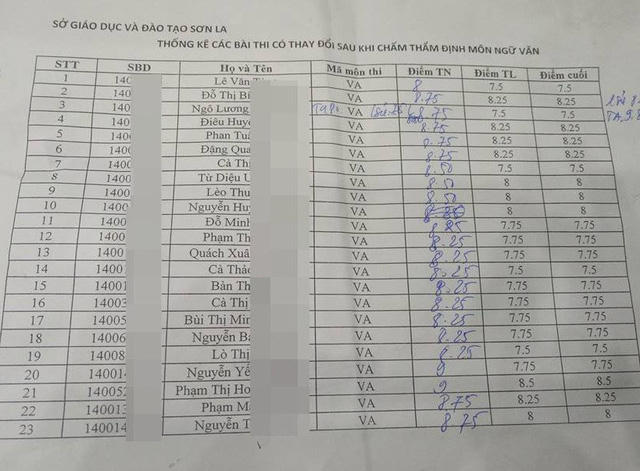 SỞ GIÁO DỤC VÀ ĐÀO TẠO SƠN LA
THỐNG KÊ CÁC BÀI THI CÓ THAY ĐỔI SAU KHI CHẤM THẨM ĐỊNH MÔN NGỮ VĂN
STT SBD Họ và Tên Mã môn thi Điểm TN Điểm TL Điểm cuối
1 140 Lê Văn VA 8 7.5 7.5
2 140 Đỗ Thị Bí VA 8.75 8.25 8.25
3 140 Ngô Lương VA 8.75 7.5 7.5
4 140 Điêu Huyề VA 8.75 8.25 8.25
5 140 Phan Tuấ VA 8.75 8.25 8.25
6 140 Đặng Qua VA 8.75 8.25 8.25
7 140 Cà Thị VA 8.50 7.5 7.5
8 1400 Từ Diệu U VA 8.50 8 8
9 1400 Lèo Thu VA 8.50 8 8
10 1400 Nguyễn Huy VA 8 8
11 1400 Đỗ Minh VA 7.75 7.75
12 1400 Phạm Th VA 8.25 7.75 7.75
13 1400 Quách Xuâ VA 8.25 7.75 7.75
14 1400 Cà Thảo VA 8.25 7.5 7.5
15 14001 Bàn Th VA 8.25 7.75 7.75
16 14003 Cà Thị VA 8.25 7.75 7.75
17 14005 Bùi Thị Min VA 8.25 7.75 7.75
18 14006 Nguyễn Bả VA 8.25 7.75 7.75
19 14008 Lò Thị VA 8.25 7.5 7.5
20 14001 Nguyễn Yế VA 9 7.75 7.75
21 140052 Phạm Thị Ho VA 9 8.5 8.5
22 140013 Phạm Mả VA 8.75 8.25 8.25
23 140014 Nguyễn T VA 8.75 8 8